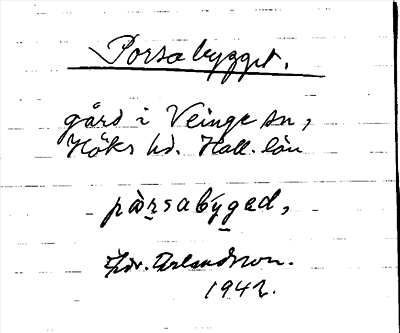 Porsabygget.
gård i Veinge sn,
Höks hd. Hall. län
pårsabyged,
Erlandsson.
1942.